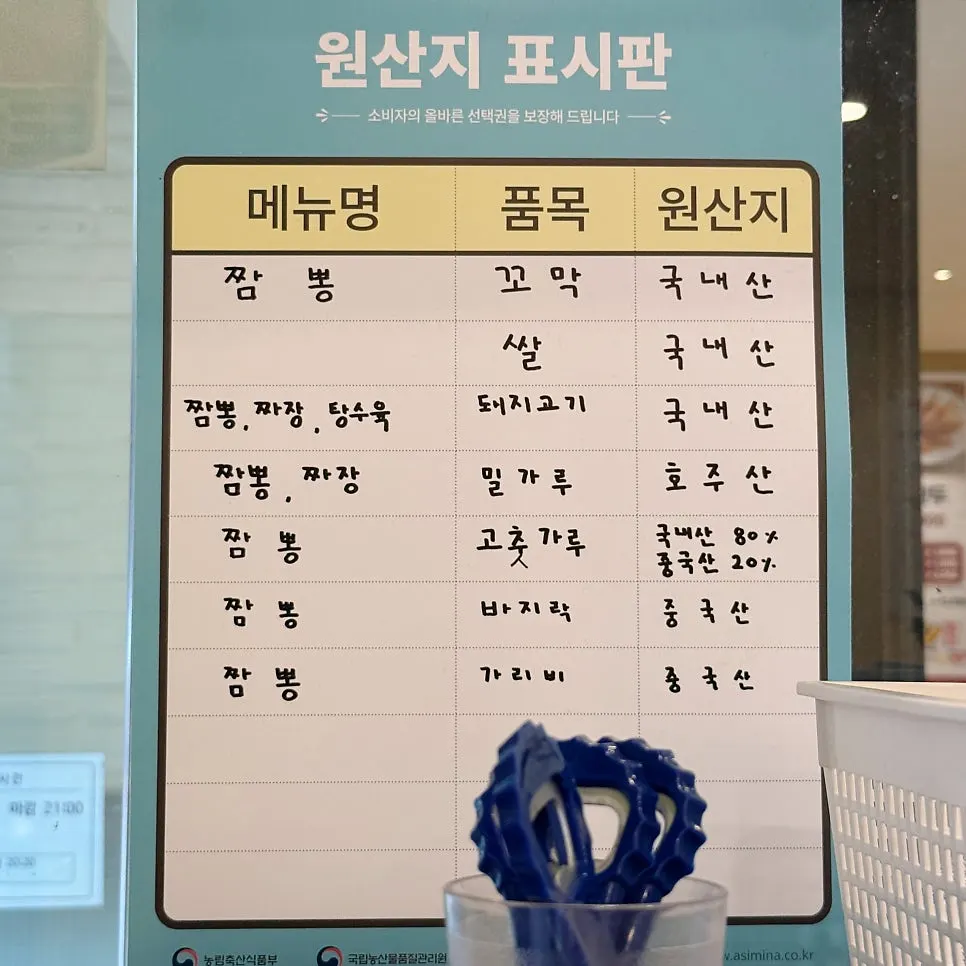 원산지 표시판
소비자의 올바른 선택권을 보장해 드립니다
메뉴명 품목 원산지
짬뽕 꼬막 국내산
쌀 국내산
짬뽕, 짜장, 탕수육 돼지고기 국내산
짬뽕, 짜장 밀가루 호주산
짬뽕 고춧가루 국내산 80%
중국산 20%
짬뽕 바지락 중국산
짬뽕 가리비 중국산
마감 21:00
20:30
농림축산식품부 국립농산물품질관리원 w.asimina.co.kr